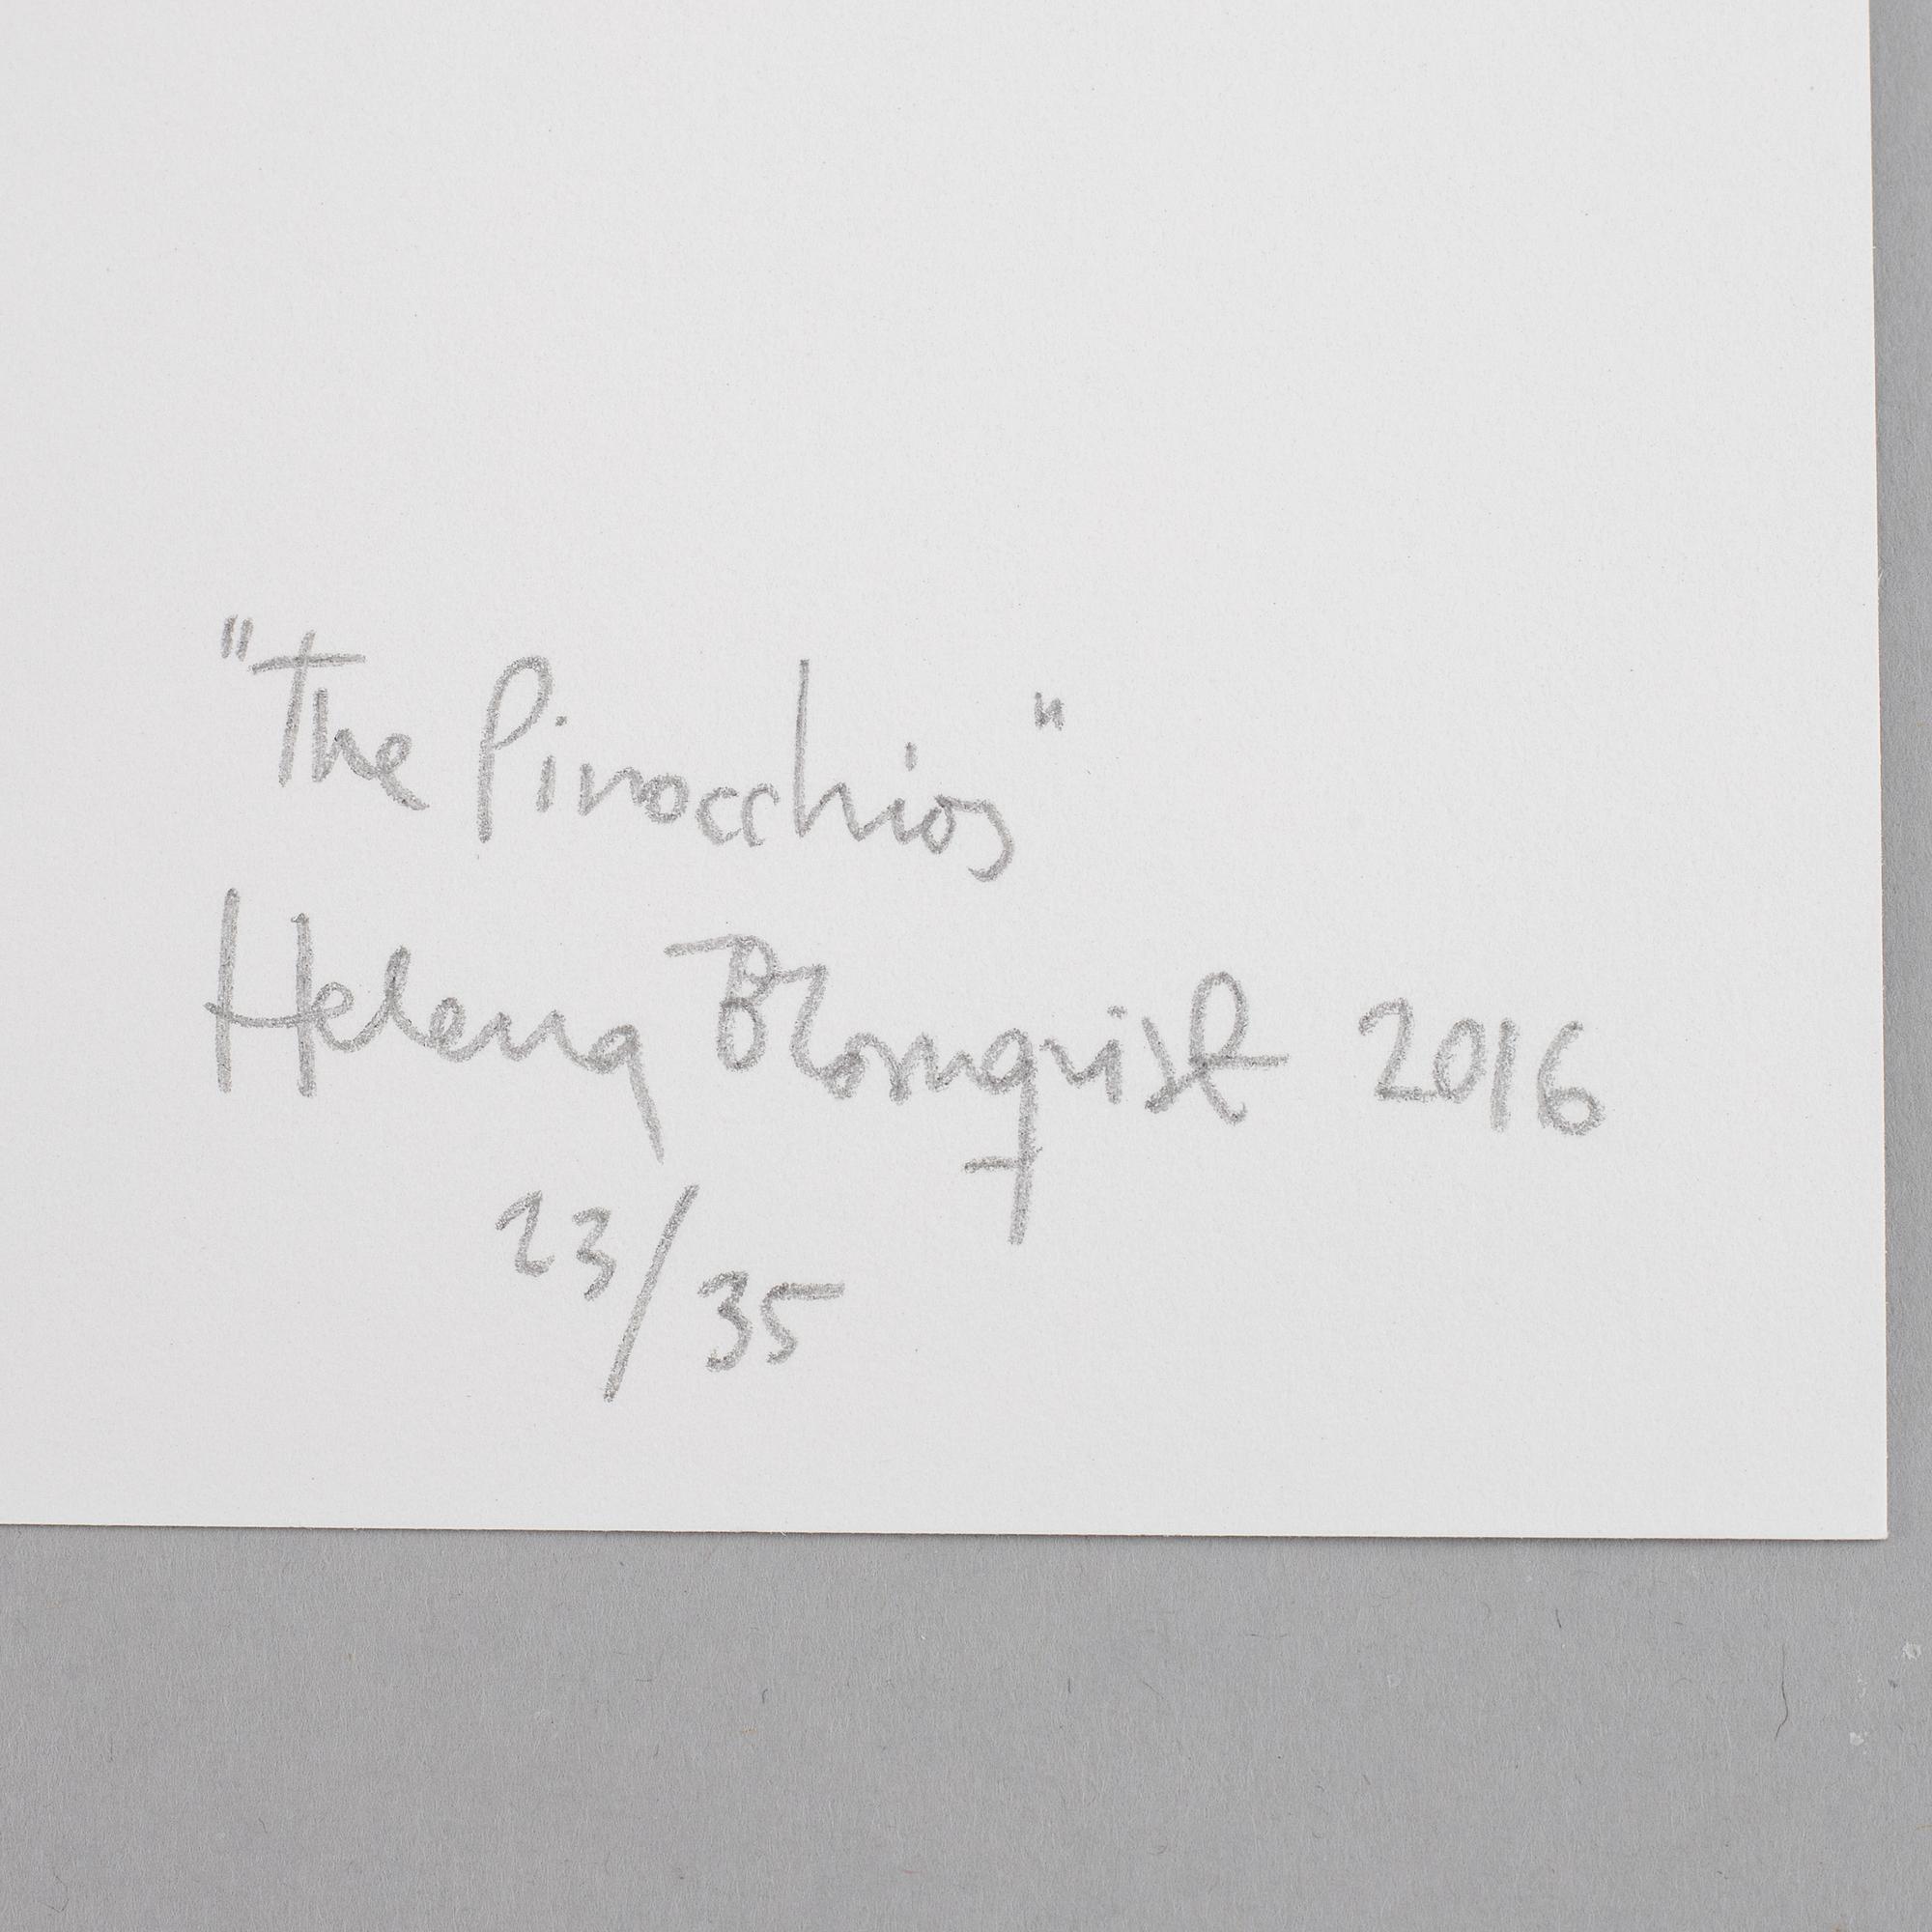 "The Pinocchios"
Helena Blomqvist 2016
23/35